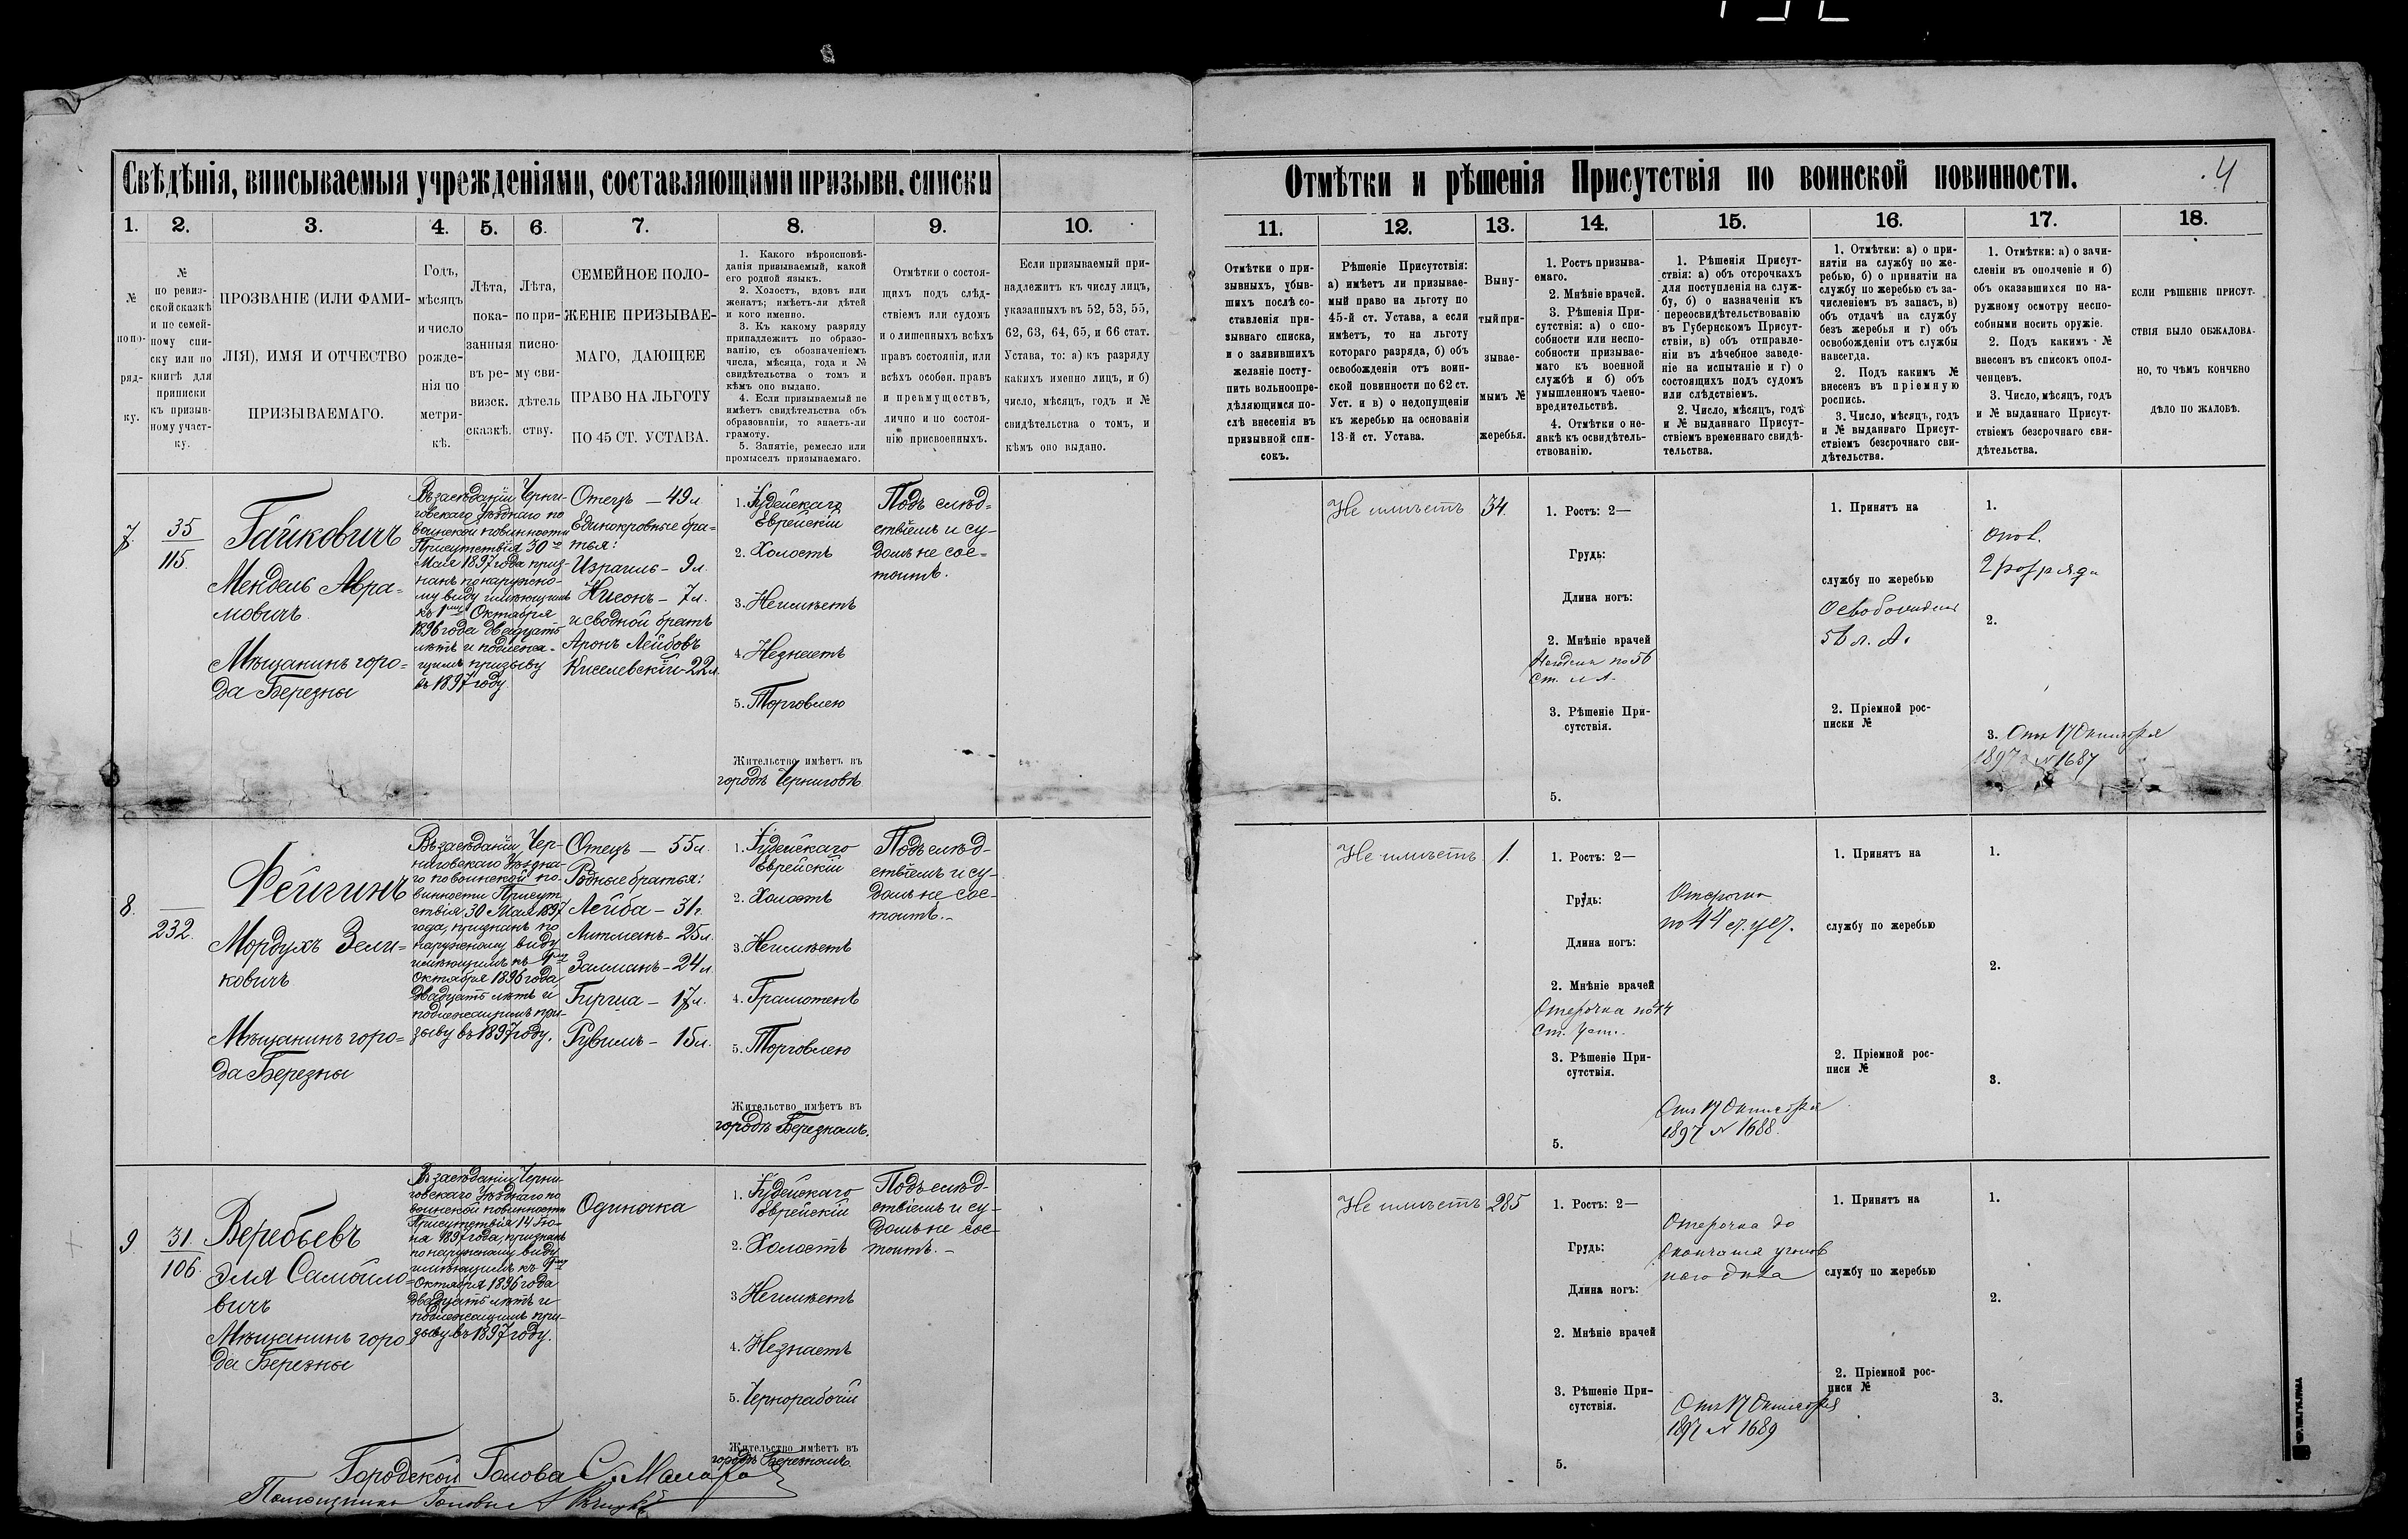 Свѣдѣнія, вписываемыя учрежденіями, составляющими призывн. списки
1.
2.
3.
4.
5.
6.
7.
8.
9.
10.
№
по по-
ряд-
ку.
№
по ревиз-
ской сказкѣ
и по семей-
ному спи-
ску или по
книгѣ для
приписки
къ призыв-
ному участ-
ку.
ПРОЗВАНІЕ (ИЛИ ФАМИ-
ЛІЯ), ИМЯ И ОТЧЕСТВО
ПРИЗЫВАЕМАГО.
Годъ,
мѣсяцъ
и число
рожде-
нія по
метри-
кѣ.
Лѣта,
пока-
занныя
въ ре-
визск.
сказкѣ.
Лѣта,
по при-
писно-
му сви-
дѣтель
ству.
СЕМЕЙНОЕ ПОЛО-
ЖЕНІЕ ПРИЗЫВАЕ-
МАГО, ДАЮЩЕЕ
ПРАВО НА ЛЬГОТУ
ПО 45 СТ. УСТАВА.
1. Какого вѣроисповѣ-
данія призываемый, какой
его родной языкъ.
2. Холостъ, вдовъ или
женатъ; имѣетъ-ли дѣтей
и кого именно.
3. Къ какому разряду
принадлежитъ по образо-
ванію, съ обозначеніемъ
числа, мѣсяца, года и №
свидѣтельства о томъ и
кѣмъ оно выдано.
4. Если призываемый не
имѣетъ свидѣтельства объ
образованіи, то знаетъ-ли
грамоту.
5. Занятіе, ремесло или
промыселъ призываемаго.
Отмѣтки о состоя-
щихъ подъ слѣд-
ствіемъ или судомъ
и о лишенныхъ всѣхъ
правъ состоянія, или
всѣхъ особен. правъ
и преимуществъ,
лично и по состоя-
нію присвоенныхъ.
Если призываемый при-
надлежитъ къ числу лицъ,
указанныхъ въ 52, 53, 55,
62, 63, 64, 65, и 66 стат.
Устава, то: а) къ разряду
какихъ именно лицъ, и б)
число, мѣсяцъ, годъ и №
свидѣтельства о томъ, и
кѣмъ оно выдано.
7.
35
115.
Гайковичъ
Мендель Авра-
мовичъ
Мѣщанинъ горо-
да Березны
Въ засѣданіи Черни-
говскаго Уѣзднаго по
воинской повинности
Присутствія 30го
Мая 1897 года приз-
нанъ по наружно-
му виду имѣющимъ
къ 1му Октября
1896 года двадцать
лѣтъ и подлежа-
щимъ призыву
въ 1897 году.
Отецъ — 49 л.
Единокровные бра-
тья:
Израиль — 9 л.
Нисонъ — 7 л.
и сводной братъ
Аронъ Лейбовъ
Киселевскій — 22 л.
1. Іудейскаго
Еврейскій
2. Холостъ
3. Неимѣетъ
4. Незнаетъ
5. Торговлею
Жительство имѣетъ въ
городѣ Черниговѣ
Подъ слѣд-
ствіемъ и су-
домъ не сос-
тоитъ.
8.
232.
Фейгинъ
Мордухъ Зели-
ковичъ
Мѣщанинъ горо-
да Березны
Въ засѣданіи Чер-
ниговскаго Уѣздна-
го по воинской по-
винности Присут-
ствія 30 Мая 1897
года, признанъ по
наружному виду
имѣющимъ къ 1му
Октября 1896 года
двадцать лѣтъ и
подлежащимъ при-
зыву въ 1897 году.
Отецъ — 55 л.
Родные братья:
Лейба — 31 г.
Литманъ — 25 л.
Залманъ — 24 л.
Гирша — 17 л.
Рувимъ — 15 л.
1. Іудейскаго
Еврейскій
2. Холостъ
3. Неимѣетъ
4. Грамотенъ
5. Торговлею
Жительство имѣетъ въ
городѣ Березномъ.
Подъ слѣд-
ствіемъ и су-
домъ не сос-
тоитъ. —
9
31.
106.
Веребьевъ
Эля Самойло-
вичъ
Мѣщанинъ горо-
да Березны
Въ засѣданіи Черни-
говскаго Уѣзднаго по
воинской повинности
Присутствія 14 Ію-
ня 1897 года, признанъ
по наружному виду
имѣющимъ къ 1му
Октября 1896 года
двадцать лѣтъ и
подлежащимъ при-
зыву въ 1897 году.
Одиночка
1. Іудейскаго
Еврейскій
2. Холостъ
3 Неимѣетъ
4. Незнаетъ
5. Чернорабочій
Жительство имѣетъ въ
городѣ Березномъ.
Подъ слѣд-
ствіемъ и су-
домъ не сос-
тоитъ. —
Городской Голова С.
Отмѣтки и рѣшенія Присутствія по воинской повинности.
4
11.
12.
13.
14.
15.
16.
17.
18.
Отмѣтки о при-
зывныхъ, убыв-
шихъ послѣ со-
ставленія при-
зывнаго списка,
и о заявившихъ
желаніе посту-
пить вольноопре-
дѣляющимся по-
слѣ внесенія въ
призывной спи-
сокъ.
Рѣшеніе Присутствія:
а) имѣетъ ли призывае-
мый право на льготу по
45-й ст. Устава, а если
имѣетъ, то на льготу
котораго разряда, б) объ
освобожденіи отъ воин-
ской повинности по 62 ст.
Уст. и в) о недопущеніи
къ жеребью на основаніи
13-й ст. Устава.
Выну-
тый при-
зывае-
мымъ №
жеребья.
1. Ростъ призыва-
емаго.
2. Мнѣніе врачей.
3. Рѣшенія При-
сутствія: а) о спо-
собности или неспо-
собности призывае-
маго къ военной
службѣ и б) объ
умышленномъ члено-
вредительствѣ.
4. Отмѣтки о не-
явкѣ къ освидѣтель-
ствованію.
1. Рѣшенія Присут-
ствія: а) объ отсрочкахъ
для поступленія на служ-
бу, б) о назначеніи къ
переосвидѣтельствованію
въ Губернскомъ Присут-
ствіи, в) объ отправле-
ніи въ лѣчебное заведе-
ніе на испытаніе и г) о
состоящихъ подъ судомъ
или слѣдствіемъ.
2. Число, мѣсяцъ, годъ
и № выданнаго Присут-
ствіемъ временнаго свидѣ-
тельства.
1. Отмѣтки: а) о при-
нятіи на службу по же-
ребью, б) о принятіи на
службу по жеребью съ за-
численіемъ въ запасъ, в)
объ отдачѣ на службу
безъ жеребья и г) объ
освобожденіи отъ службы
навсегда.
2. Подъ какимъ №
внесенъ въ пріемную
роспись.
3. Число, мѣсяцъ, годъ
и № выданнаго Присут-
ствіемъ безсрочнаго сви-
дѣтельства.
1. Отмѣтки: а) о зачи-
сленіи въ ополченіе и б)
объ оказавшихся по на-
ружному осмотру неспо-
собными носить оружіе.
2. Подъ какимъ №
внесенъ въ списокъ опол-
ченцевъ.
3. Число, мѣсяцъ, годъ
и № выданнаго Присут-
ствіемъ безсрочнаго сви-
дѣтельства.
ЕСЛИ РѢШЕНІЕ ПРИСУТ-
СТВІЯ БЫЛО ОБЖАЛОВА-
НО, ТО ЧѢМЪ КОНЧЕНО
ДѢЛО ПО ЖАЛОБѢ.
Не имѣетъ
34.
1. Ростъ: 2—
Грудь:
Длина ногъ:
2. Мнѣніе врачей
по 56
ст. л А.
3. Рѣшеніе При-
сутствія.
5.
1. Принятъ на
службу по жеребью
56 л. А.
2. Пріемной рос-
писки №
1.
опол.
2 разряда
2.
3. Отъ 17 Октября
1897 № 1687
Не имѣетъ.
1.
1. Ростъ: 2—
Грудь:
Длина ногъ:
2. Мнѣніе врачей
Отсрочка по 44
ст. Уст.
3. Рѣшеніе При-
сутствія.
5.
Отсрочка
по 44 ст. уст.
Отъ 17 Октября
1897 № 1688.
1. Принятъ на
службу по жеребью
2. Пріемной рос-
писи №
1.
2.
3.
Не имѣетъ
285
1. Ростъ: 2—
Грудь:
Длина ногъ:
2. Мнѣніе врачей
3. Рѣшеніе При-
сутствія.
5.
Отсрочка до
окончанія уголов
наго дѣла
Отъ 17 Октября
1897 № 1689
1. Принятъ на
службу по жеребью
2. Пріемной рос-
писи №
1.
2.
3.